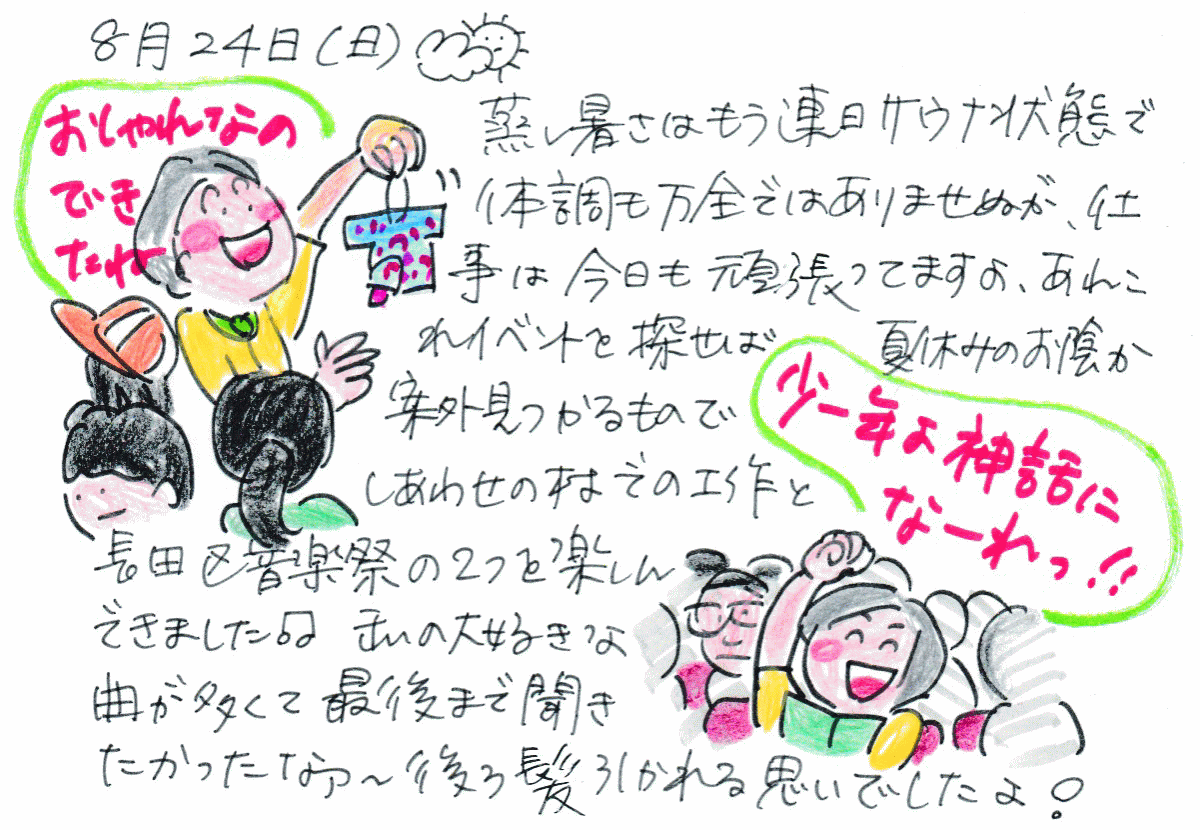 8月24日(日)
おしゃれなの
できた
たね
蒸し暑さはもう連日サウナ状態で
体調も万全ではありませぬが、仕
事は今日も頑張ってますよ、あれこ
れイベントを探せば 夏休みのお陰か
案外見つかるもので
しあわせの村での工作と
長田区音楽祭の2つを楽しん
できました 私の大好きな
曲が多くて最後まで聞き
たかったなァ〜後ろ髪引かれる思いでしたよ!
少年よ神話に
なーれっ!!